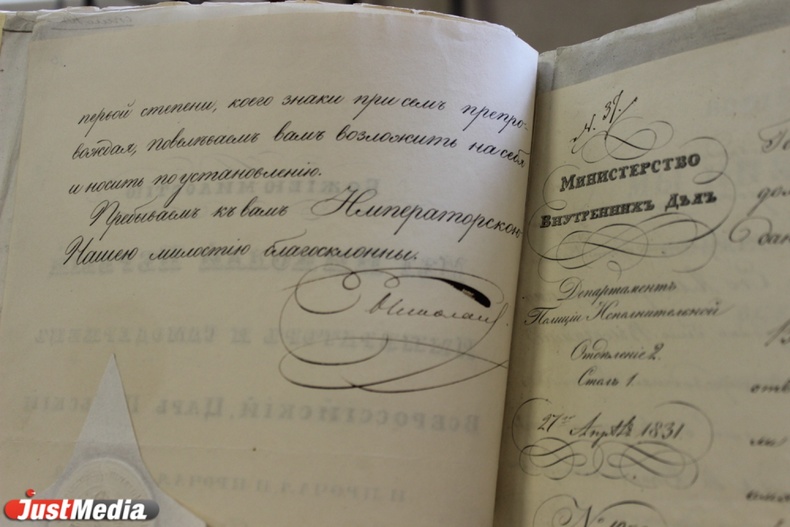 первой степени, коего знаки при семъ препро-
вождая, повелѣваемъ вамъ возложить на себя
и носить по установленію.
Пребываемъ къ вамъ Императорскою
Нашею милостію благосклонны.
Николай
N. 39.
Министерство
Внутреннихъ Дѣлъ
Департаментъ
Полиціи Исполнительной
Отдѣленіе 2.
Столъ 1.
27го Апрѣля 1831
JustMedia